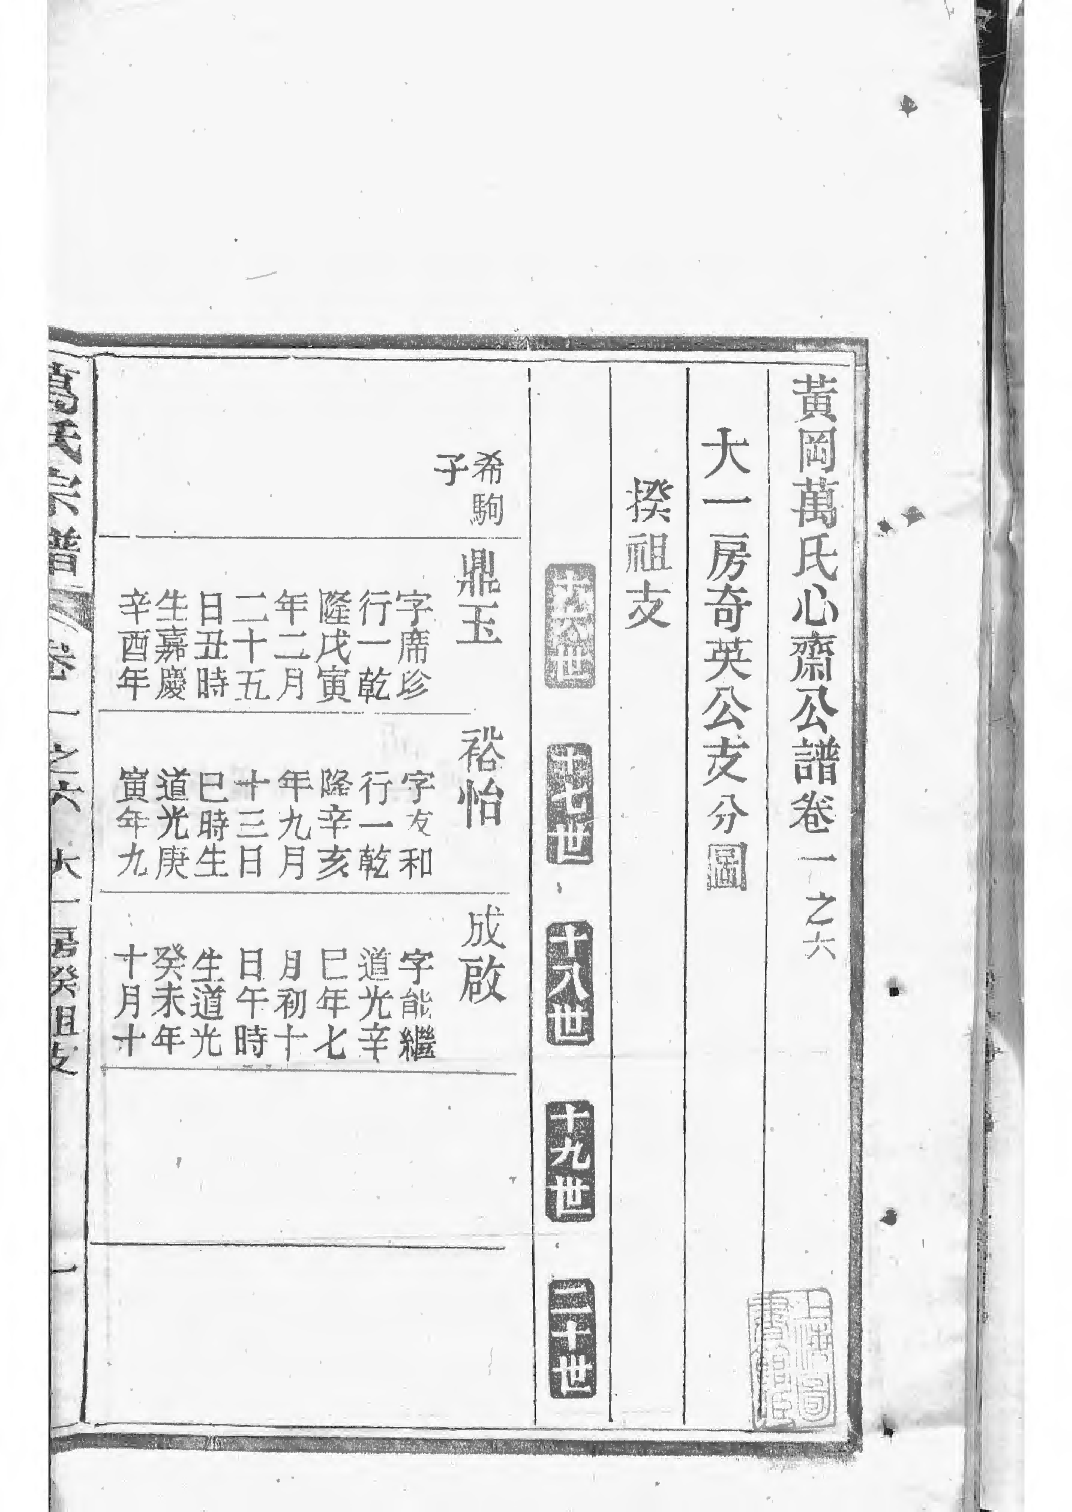 黃岡萬氏心齋公譜卷一之六
大一房奇英公支分圖
揆祖支
十六世
十七世
十八世
十九世
二十世
希駒
子
鼎玉
字席珍
行一乾
隆戊寅
年二月
二十五
日丑時
生嘉慶
辛酉年
裕怡
字友和
行一乾
隆辛亥
年九月
十三日
巳時生
道光庚
寅年九
成啟
字能繼
道光辛
巳年七
月初十
日午時
生道光
癸未年
十月十
萬氏宗譜
卷一之六
大一房揆祖支
一
上海圖
書館藏